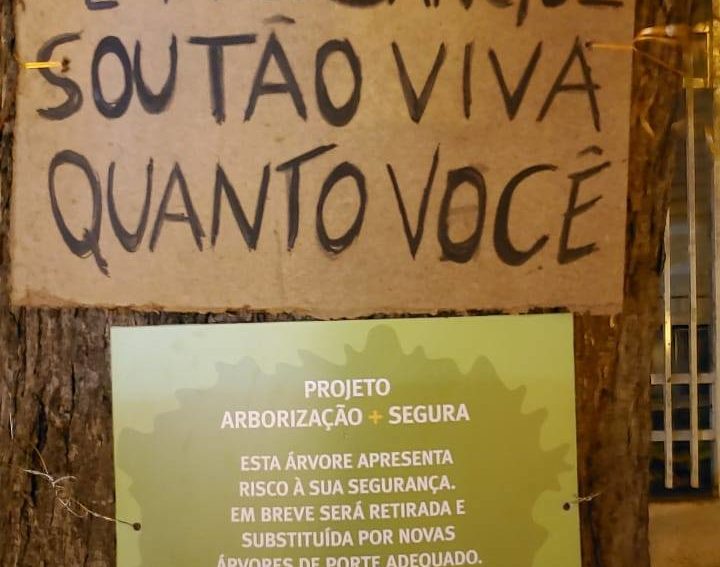 SOU TÃO VIVA
QUANTO VOCÊ
PROJETO
ARBORIZAÇÃO + SEGURA
ESTA ÁRVORE APRESENTA
RISCO À SUA SEGURANÇA.
EM BREVE SERÁ RETIRADA E
SUBSTITUÍDA POR NOVAS
ÁRVORES DE PORTE ADEQUADO.